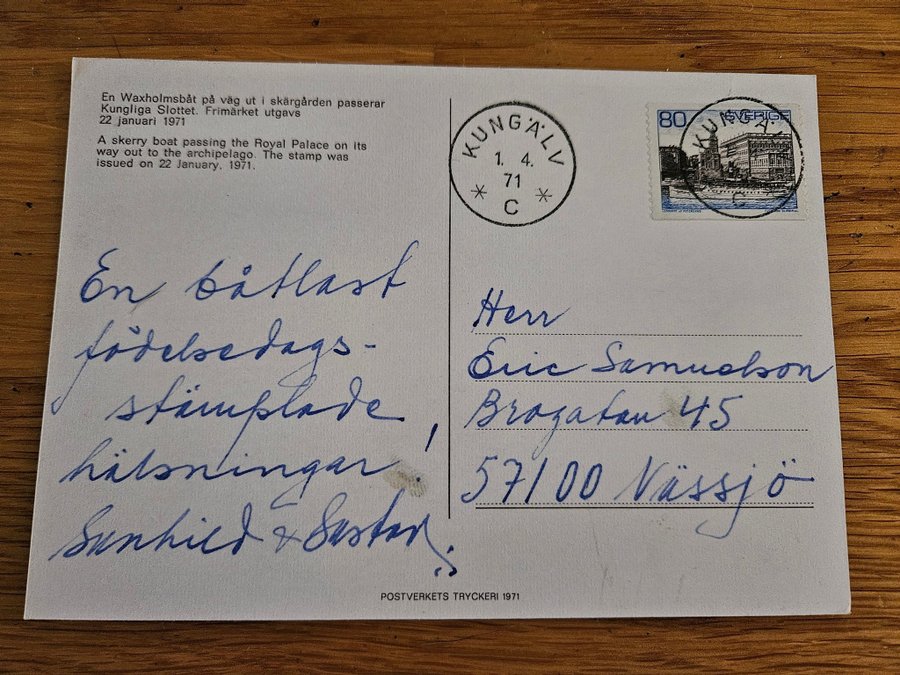 En Waxholmsbåt på väg ut i skärgården passerar
Kungliga Slottet. Frimärket utgavs
22 januari 1971
A skerry boat passing the Royal Palace on its
way out to the archipelago. The stamp was
issued on 22 January, 1971.
KUNGÄLV
1. 4.
71
C
80 SVERIGE
KUNGÄLV
C
En båtlast
födelsedags-
stämplade
hälsningar!
Gunhild & Gustav
Herr
Eric Samuelson
Brogatan 45
57100 Nässjö
POSTVERKETS TRYCKERI 1971